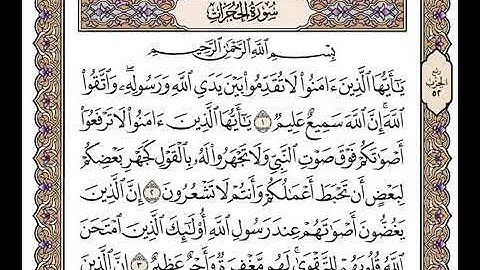 سُورَةُ الحُجُرَاتِ
بِسْمِ اللَّهِ الرَّحْمَٰنِ الرَّحِيمِ
يَٰٓأَيُّهَا الَّذِينَ ءَامَنُوا لَا تُقَدِّمُوا بَيْنَ يَدَيِ اللَّهِ وَرَسُولِهِۦ وَاتَّقُوا
اللَّهَ إِنَّ اللَّهَ سَمِيعٌ عَلِيمٌ ١ يَٰٓأَيُّهَا الَّذِينَ ءَامَنُوا لَا تَرْفَعُوٓا
أَصْوَٰتَكُمْ فَوْقَ صَوْتِ النَّبِيِّ وَلَا تَجْهَرُوا لَهُۥ بِالْقَوْلِ كَجَهْرِ بَعْضِكُمْ
لِبَعْضٍ أَن تَحْبَطَ أَعْمَٰلُكُمْ وَأَنتُمْ لَا تَشْعُرُونَ ٢ إِنَّ الَّذِينَ
يَغُضُّونَ أَصْوَٰتَهُمْ عِندَ رَسُولِ اللَّهِ أُو۟لَٰٓئِكَ الَّذِينَ امْتَحَنَ
اللَّهُ قُلُوبَهُمْ لِلتَّقْوَىٰ لَهُم مَّغْفِرَةٌ وَأَجْرٌ عَظِيمٌ ٣ إِنَّ الَّذِينَ
ربع
الحزب
٥٢